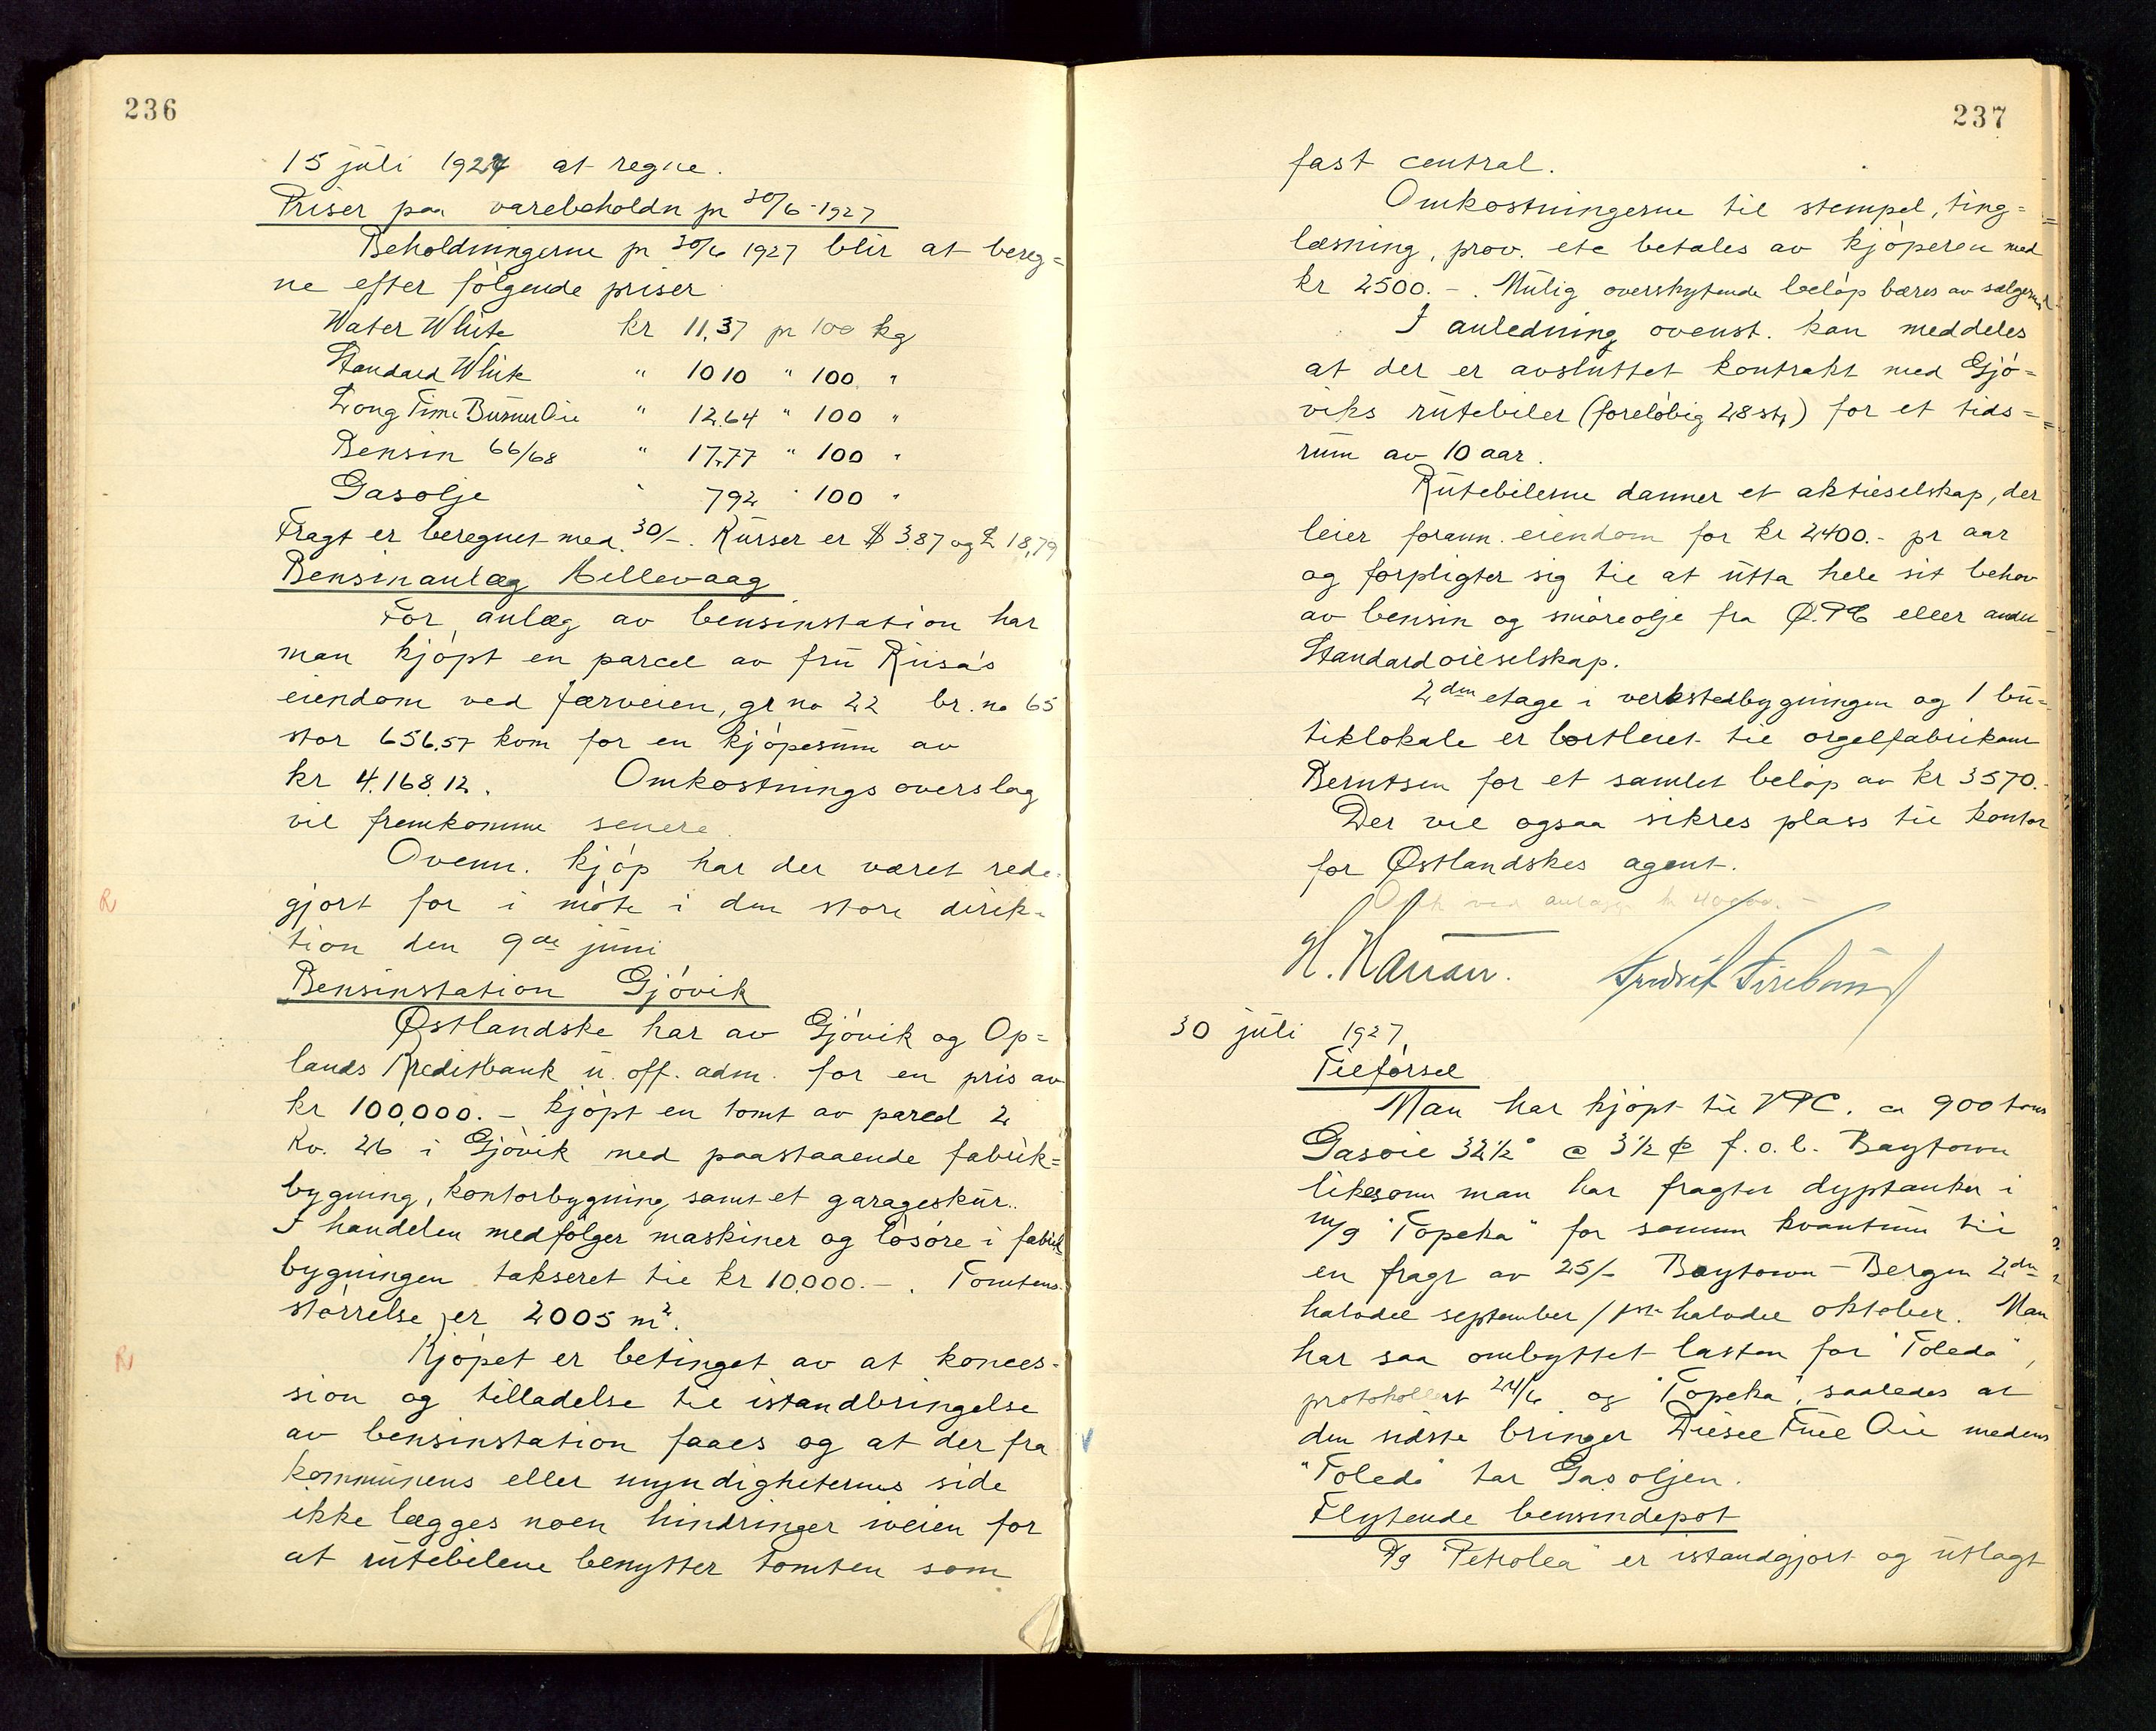 236
15 juli 1927 at regne.
Priser paa varebeholdn pr 30/6-1927
Beholdningerne pr 30/6 1927 blir at bereg=
ne efter følgende priser
Water White kr 11,37 pr 100 kg
Standard White " 10 10 " 100 "
Long Time Burner Oil " 12.64 " 100 "
Bensin 66/68 " 17,77 " 100 "
Gasolje " 792 " 100 "
Fragt er beregnet med 30/-. Kurser er $ 3.87 og £ 18,79
Bensinanlæg Hillevaag
For anlæg av bensinstation har
man kjøpt en parcel av fru Riisa's
eiendom ved færveien, gr no 22 br. no 65
stor 656.57 kvm for en kjøpesum av
kr 4.168.12. Omkostnings overslag
vil fremkomme senere.
Ovenn. kjøp har der været rede-
gjort for i møte i den store direk-
tion den 9de juni
Bensinstation Gjøvik
Østlandske har av Gjøvik og Op=
lands Kreditbank u. off. adm. for en pris av
kr 100,000.- kjøpt en tomt av parcel 2
kv. 26 i Gjøvik med paastaaende fabrik=
bygning, kontorbygning samt et garageskur..
I handelen medfølger maskiner og løsøre i fabrik
bygningen takseret til kr 10.000.-. Tomtens
størrelse er 2005 m².
Kjøpet er betinget av at konces-
sion og tilladelse til istandbringelse
av bensinstation faaes og at der fra
kommunens eller myndigheternes side
ikke lægges noen hindringer iveien for
at rutebilene benytter tomten som
R
R
237
fast central.
Omkostningerne til stempel, ting=
læsning, prov. etc betales av kjøperen med
kr 2500.-. Mulig overskytende beløp bæres av sælgerne
I anledning ovenst. kan meddeles
at der er avsluttet kontrakt med Gjø=
viks rutebiler (foreløbig 28 stk) for et tids=
rum av 10 aar.
Rutebilerne danner et aktieselskap, der
leier forann. eiendom for kr 2400.- pr aar
og forpligter sig til at utta hele sit behov
av bensin og smøreolje fra Ø.P.C eller andre
Standardoilselskap.
2den etage i verkstedbygningen og 1 bu=
tiklokale er bortleiet til orgelfabrikant
Berntsen for et samlet beløp av kr 3570.-
Der vil ogsaa sikres plass til kontor
for Østlandskes agent.
ved anlægg kr 40000.-
H. Hansen.
30 juli 1927
Tilførsel
Man har kjøpt til VPC. ca 900 tons
Gasoil 32½° @ 3½ ¢ f.o.b. Baytown
likesom man har fragtet dyptanker i
m/s "Topeka" for samme kvantum til
en fragt av 25/- Baytown - Bergen 2den
halvdel september / 1ste halvdel oktober. Man
har saa ombyttet lasten for "Toledo",
protokollert 24/6 og "Topeka", saaledes at
den sidste bringer Diesel Fuel Oil medens
"Toledo" tar Gasoljen.
Flytende bensindepot
"Petrolea" er istandgjort og utlagt